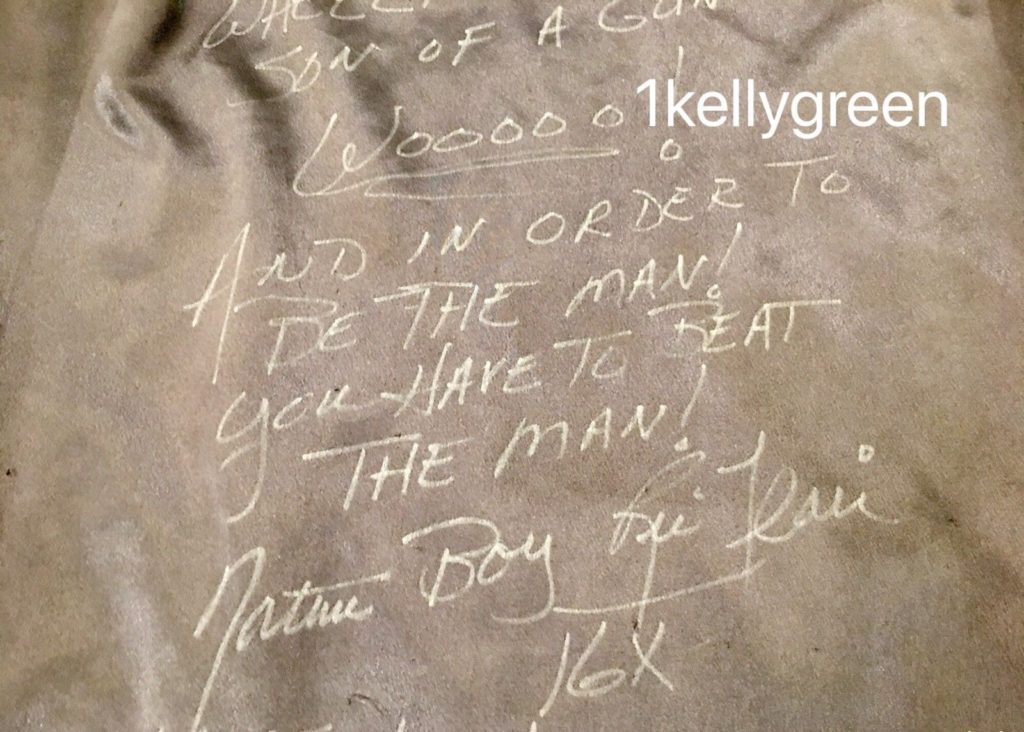 SON OF A GUN
1kellygreen
Wooooo!
AND IN ORDER TO
BE THE MAN!
YOU HAVE TO BEAT
THE MAN!
Nature Boy Ric Flair
16X